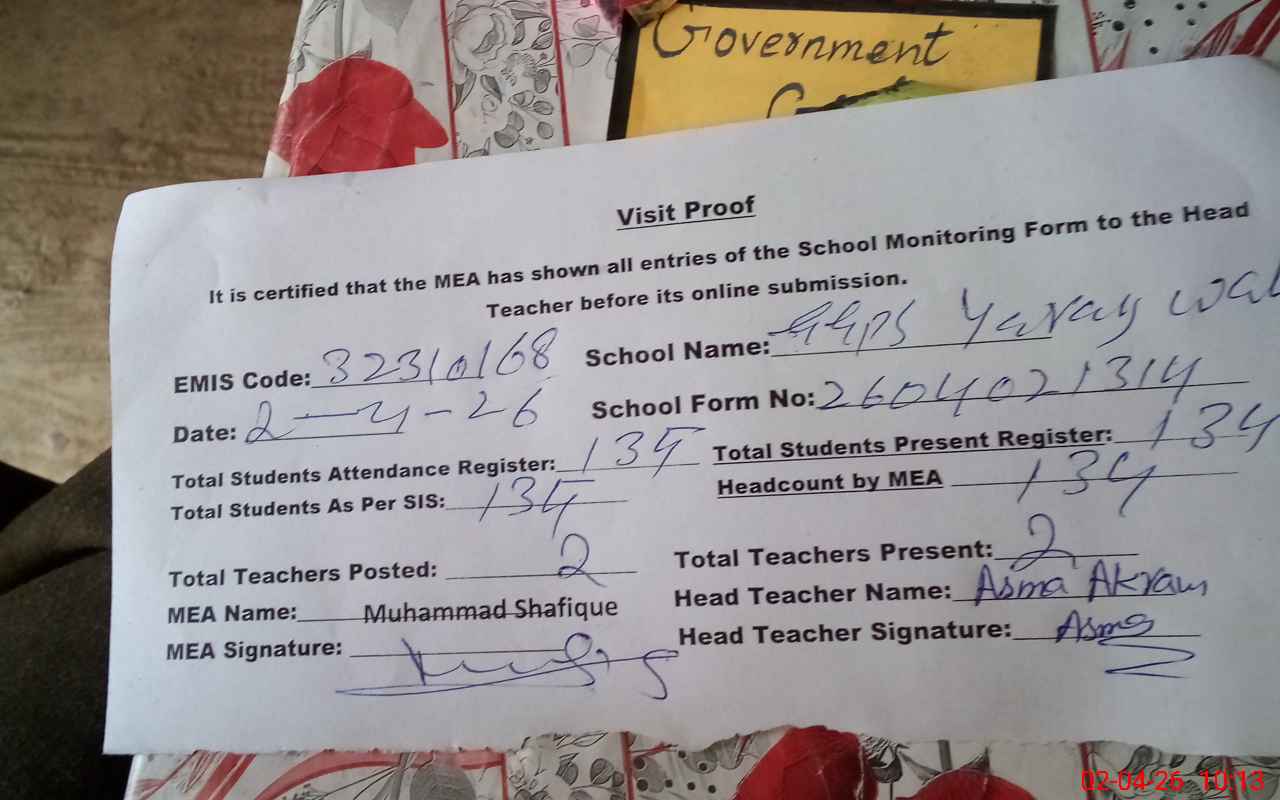 Government
Visit Proof
It is certified that the MEA has shown all entries of the School Monitoring Form to the Head
Teacher before its online submission.
EMIS Code: 32310168 School Name: GGPS Yaray Wal
Date: 2-4-26 School Form No: 2604021314
Total Students Attendance Register: 135 Total Students Present Register: 134
Total Students As Per SIS: 135 Headcount by MEA 134
Total Teachers Posted: 2 Total Teachers Present: 2
MEA Name: Muhammad Shafique Head Teacher Name: Asma Akram
MEA Signature: Head Teacher Signature: Asma
02-04-26 10:13